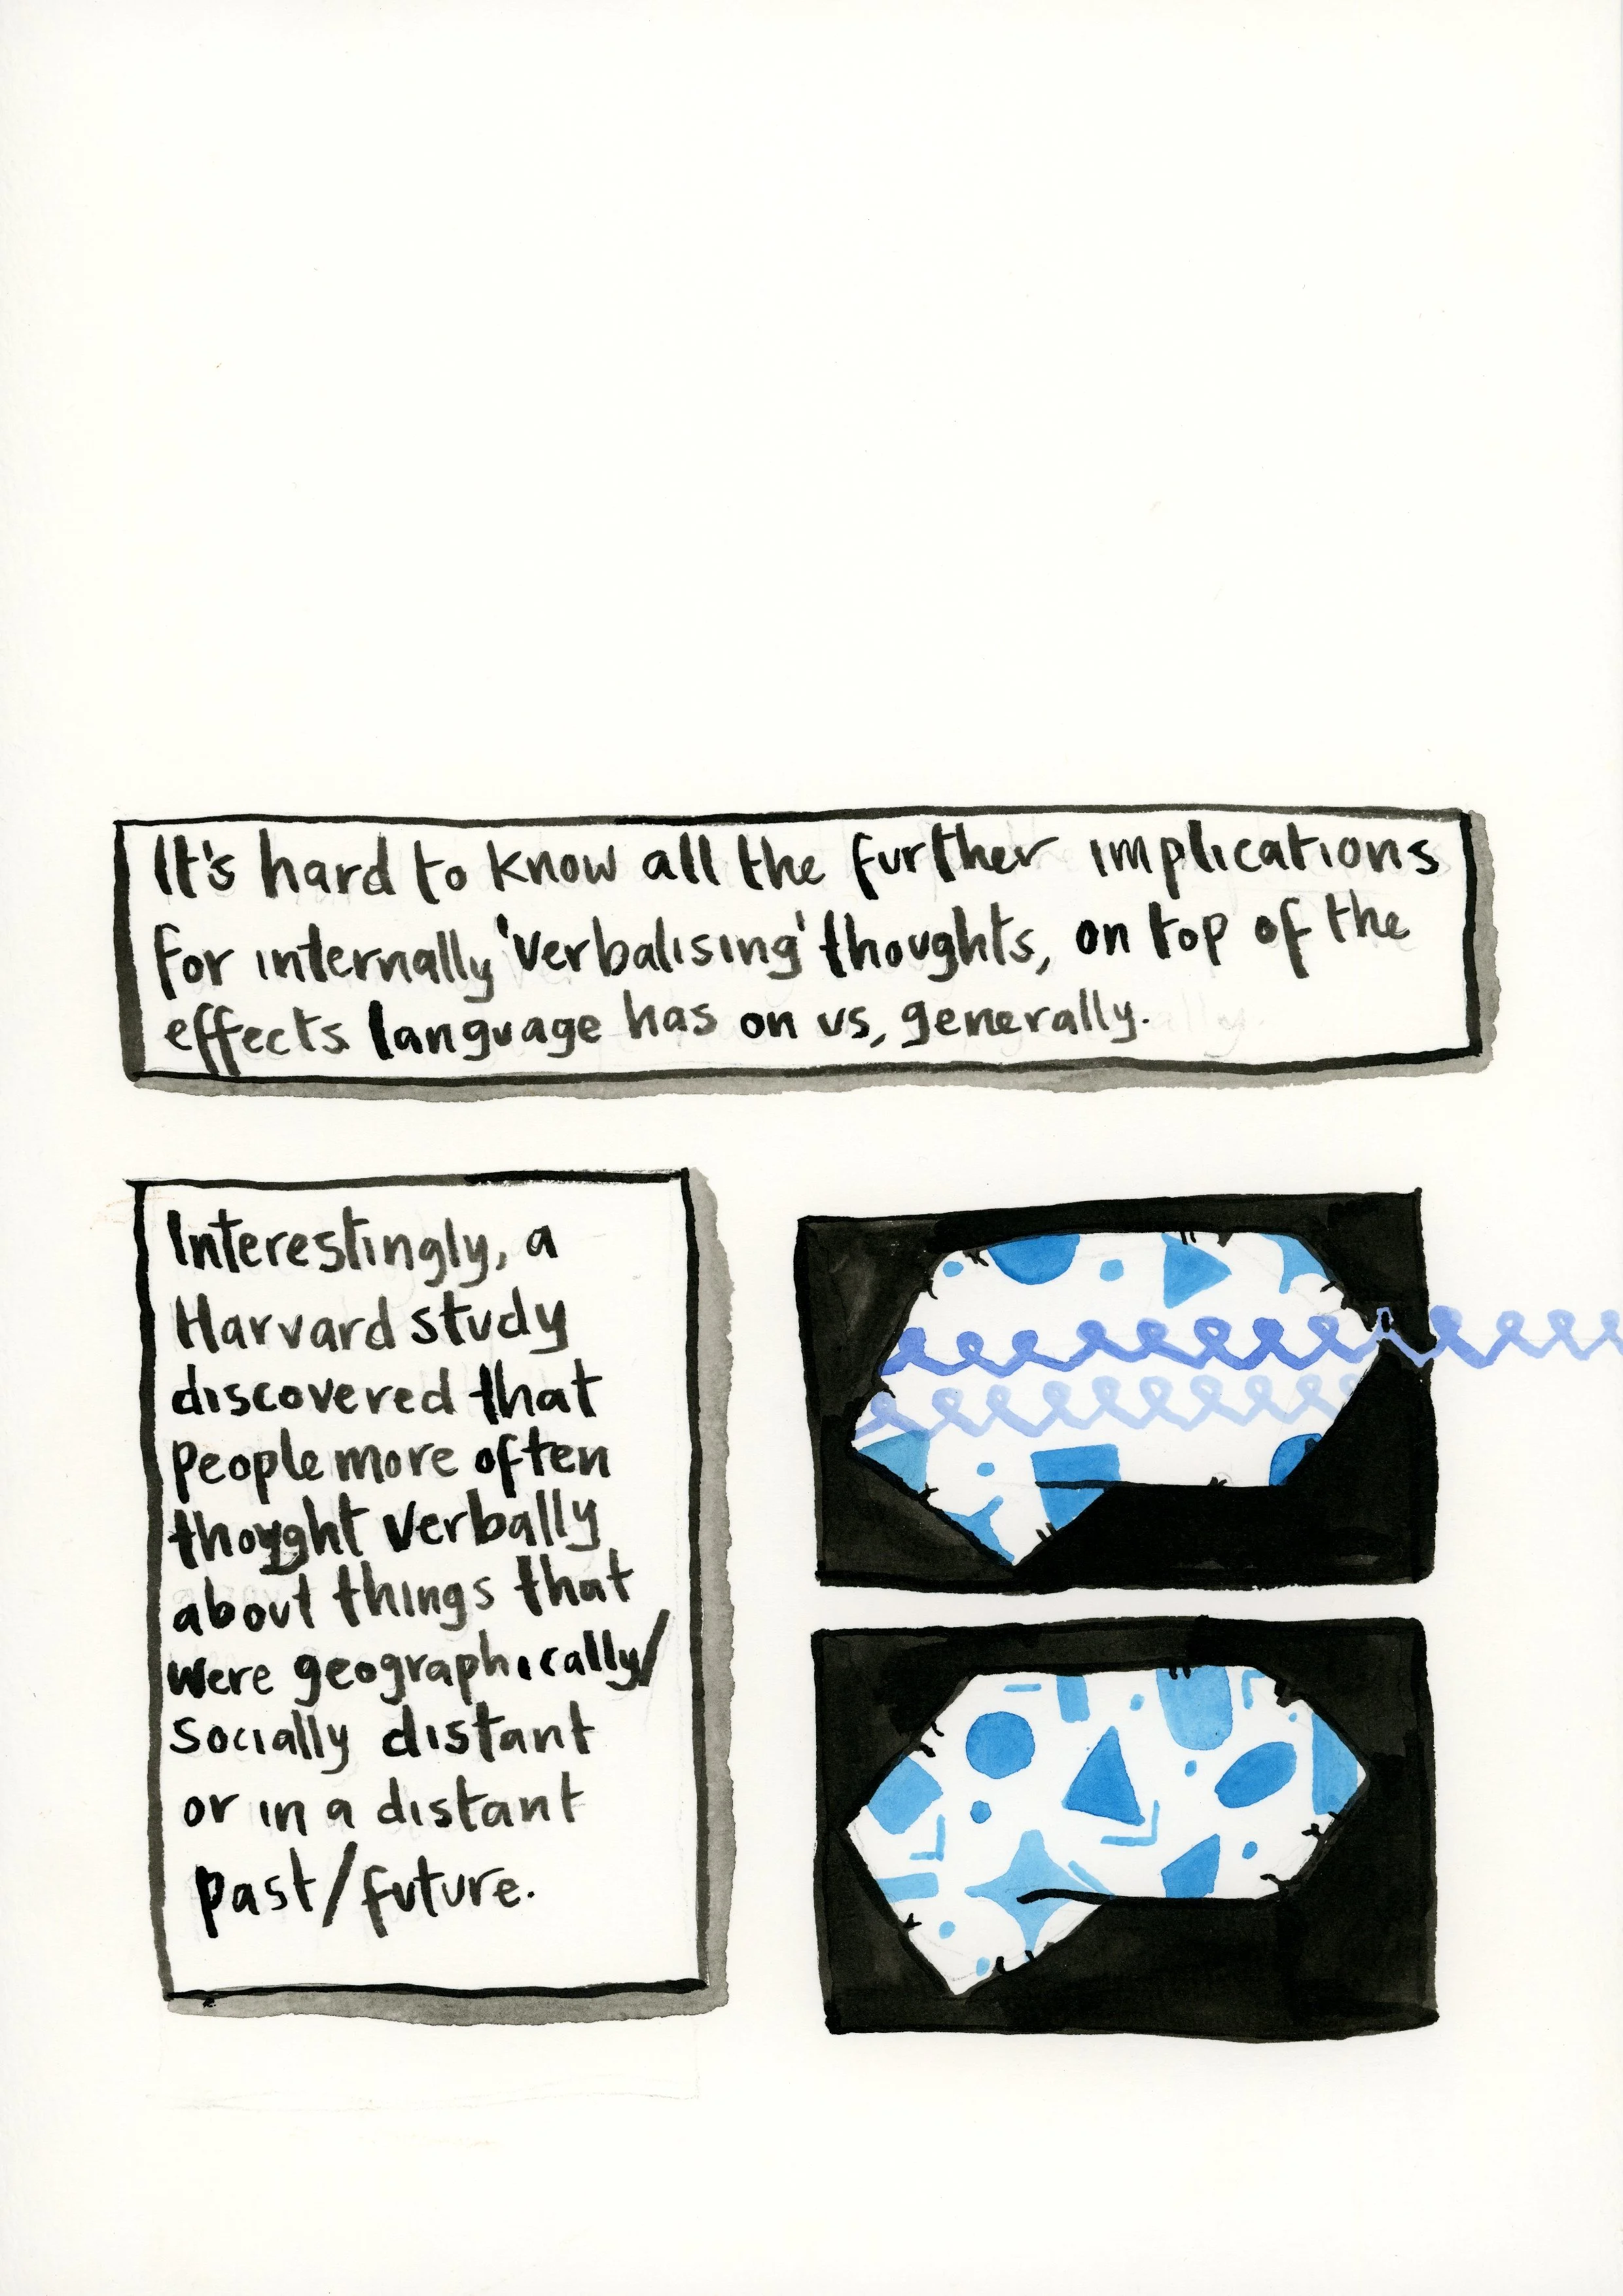 It's hard to know all the further implications
for internally 'verbalising' thoughts, on top of the
effects language has on us, generally.
Interestingly, a
Harvard study
discovered that
people more often
thought verbally
about things that
were geographically/
socially distant
or in a distant
past/future.